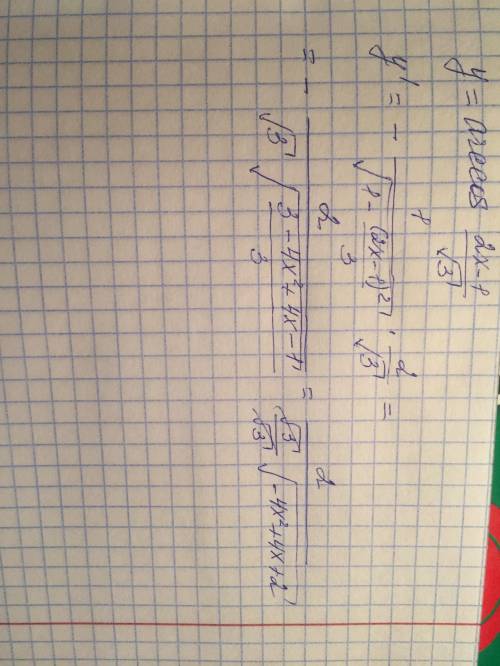 y = arccos (2x-1)/√3
y' = - 1/√(1 - (2x-1)²/3) · 2/√3 =
= - 2/(√3 √((3 - 4x² + 4x - 1)/3)) = 2/((√3/√3) √(-4x² + 4x + 2))